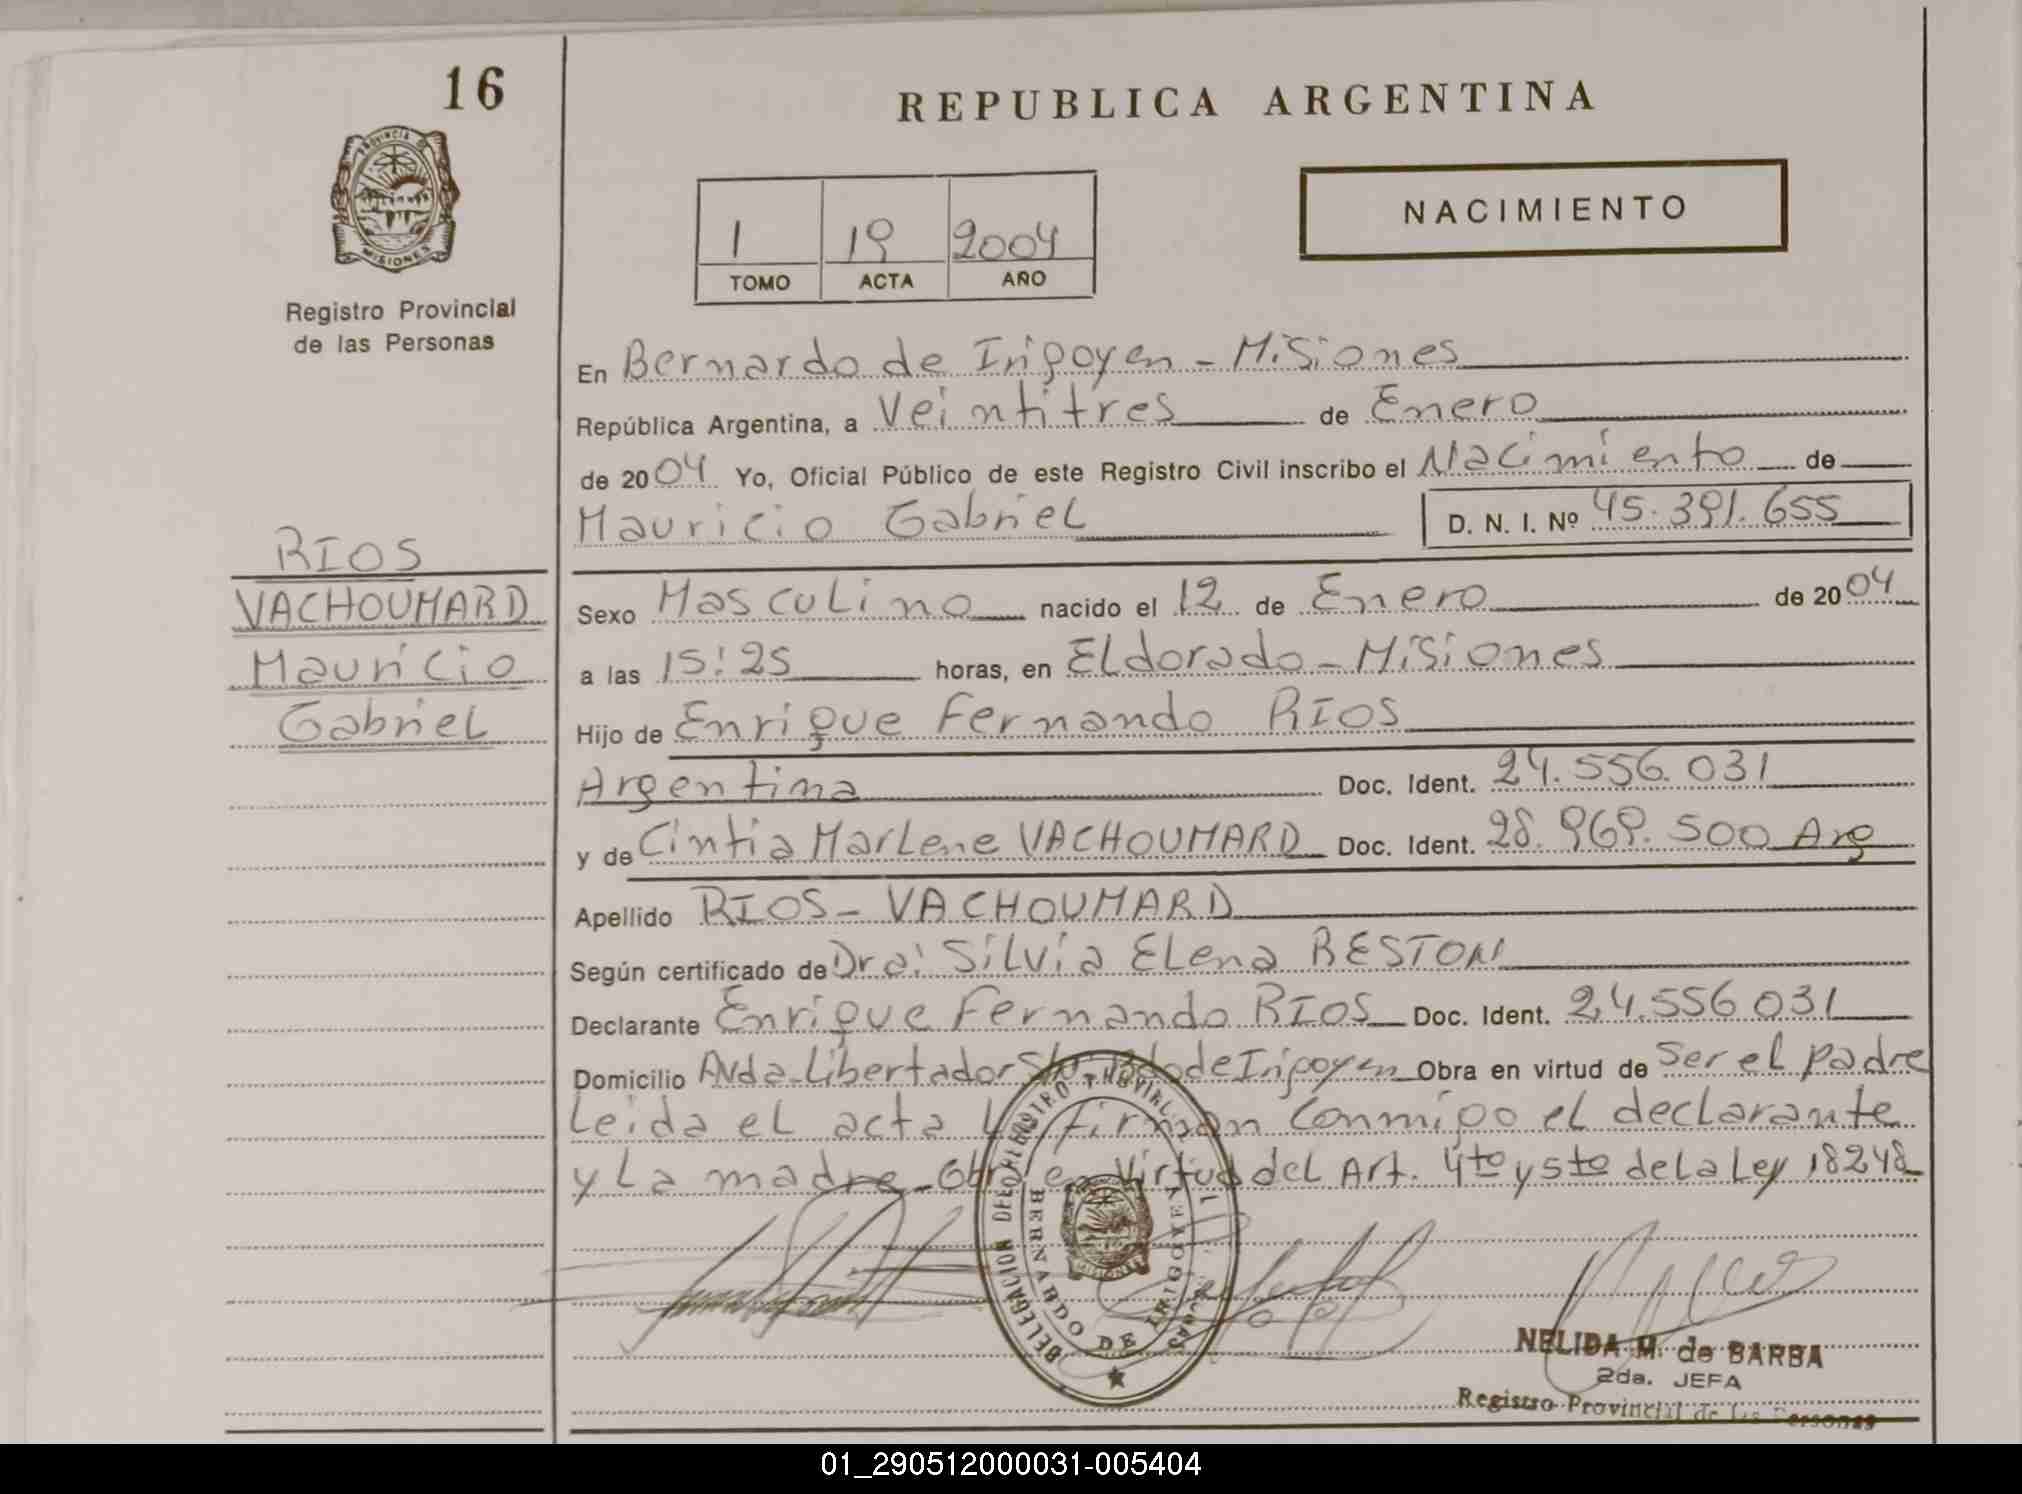 16
PROVINCIA DE
MISIONES
Registro Provincial
de las Personas
RIOS
VACHOUMARD
Mauricio
Gabriel
REPUBLICA ARGENTINA
1 19 2004
TOMO ACTA AÑO
NACIMIENTO
En Bernardo de Irigoyen - Misiones
República Argentina, a Veintitres de Enero
de 2004 Yo, Oficial Público de este Registro Civil inscribo el Nacimiento de
Mauricio Gabriel D. N. I. Nº 45.391.655
Sexo Masculino nacido el 12 de Enero de 2004
a las 15:25 horas, en Eldorado - Misiones
Hijo de Enrique Fernando RIOS
Argentina Doc. Ident. 24.556.031
y de Cintia Marlene VACHOUMARD Doc. Ident. 28.969.500 Arg
Apellido RIOS - VACHOUMARD
Según certificado de Dra: Silvia Elena BESTON
Declarante Enrique Fernando RIOS Doc. Ident. 24.556 031
Domicilio Avda. Libertador S/Nº Bdo de Irigoyen Obra en virtud de Ser el padre
Leida el acta la firman Conmigo el declarante
y La madre. Obra en Virtud del Art. 4to y 5to de la Ley 18248
DELEGACION DEL REGISTRO PROVINCIAL
BERNARDO DE IRIGOYEN
MISIONES
NELIDA M. de BARBA
2da. JEFA
Registro Provincial de las Personas
01_290512000031-005404